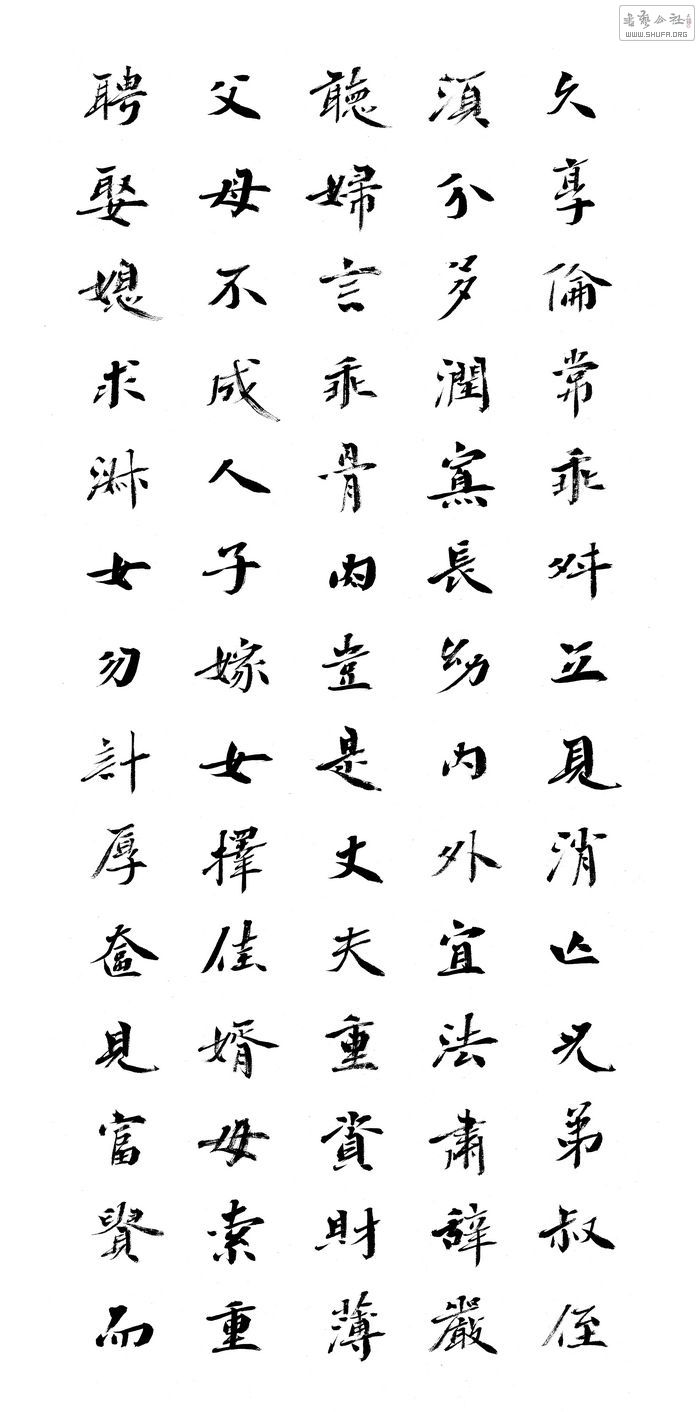 書藝公社
WWW.SHUFA.ORG
久享倫常乖舛立見消亡兄弟叔侄
須分多潤寡長幼內外宜法肅辭嚴
聽婦言乖骨肉豈是丈夫重資財薄
父母不成人子嫁女擇佳婿毋索重
聘娶媳求淑女勿計厚奩見富貴而